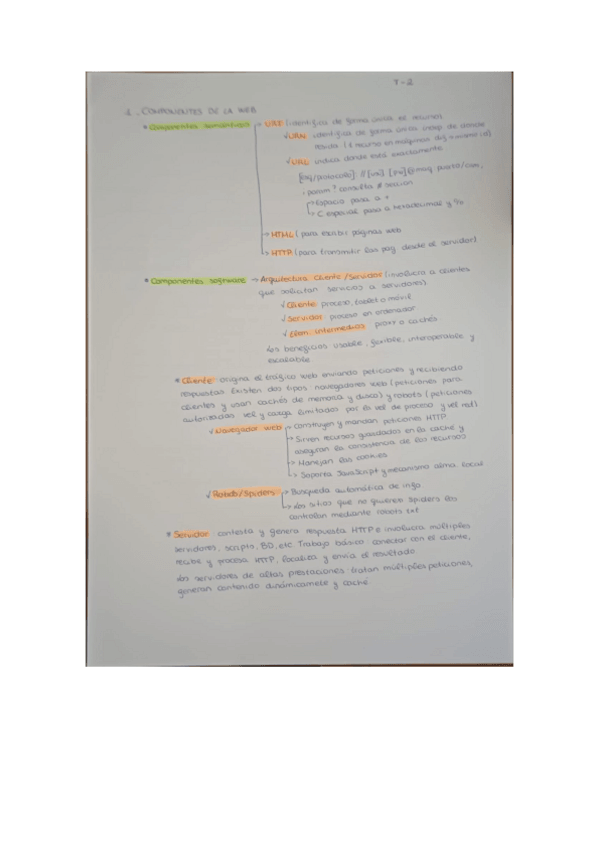 T-2
1. COMPONENTES DE LA WEB
* Componentes semánticos → URI (identifica de forma única el recurso)
✓ URN identifica de forma única indep. de donde
resida (1 recurso en máquinas dif = mismo id)
✓ URL indica donde está exactamente
[esq/protocolo]: // [us]: [pw]@maq: puerto/cam;
param? consulta # seccion
→ Espacio pasa a +
→ C especial pasa a hexadecimal y %
→ HTML (para escribir páginas web
→ HTTP (para transmitir las pag. desde el servidor)
* Componentes software → Arquitectura Cliente/Servidor (involucra a clientes
que solicitan servicios a servidores)
✓ Cliente: proceso, tablet o móvil
✓ Servidor: proceso en ordenador
✓ Elem. intermedios: proxy o cachés
Los beneficios: usable, flexible, interoperable y
escalable.
* Cliente: origina el tráfico web enviando peticiones y recibiendo
respuestas. Existen dos tipos: navegadores web (peticiones para
clientes y usan cachés de memoria y disco) y robots (peticiones
autorizadas vel. y carga limitados por la vel de proceso y vel red).
✓ Navegador web → Construyen y mandan peticiones HTTP
→ Sirven recursos guardados en la caché y
aseguran la consistencia de los recursos
→ Manejan las cookies
→ Soporta JavaScript y mecanismo alma. local
✓ Robots/Spiders → Busqueda automática de info.
→ Los sitios que no quieren spiders los
controlan mediante robots.txt
* Servidor: contesta y genera respuesta HTTP e involucra múltiples
servidores, scripts, BD, etc. Trabajo básico: conectar con el cliente,
recibe y procesa HTTP, localiza y envía el resultado.
Los servidores de altas prestaciones: tratan múltiples peticiones,
generan contenido dinámicamente y caché.